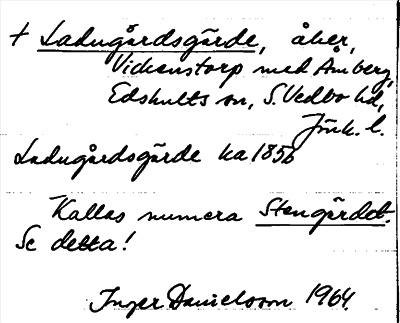 † Ladugårdsgärde, åker,
Vickenstorp med Amberg,
Edshults sn, S. Vedbo hd,
Jönk. l.
Ladugårdsgärde ka 1856
Kallas numera Stengärdet.
Se detta!
Inger Danielsson 1964.